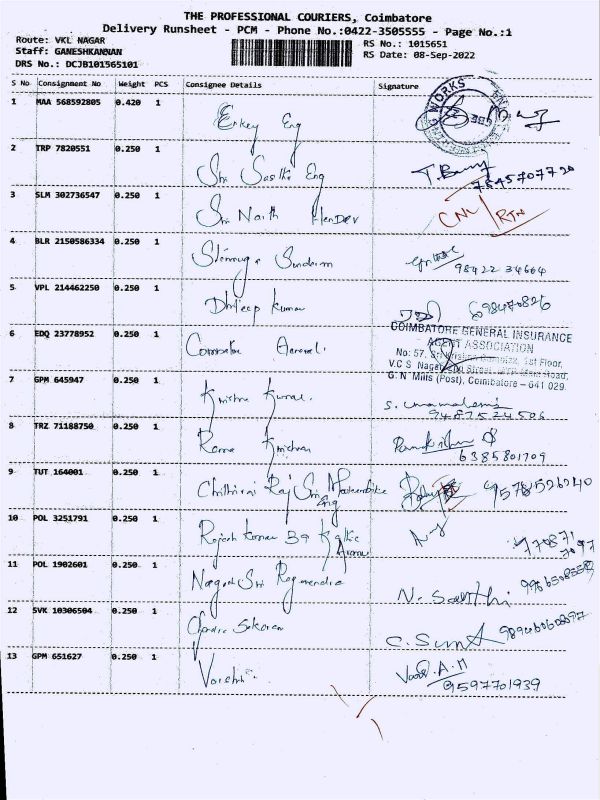 THE PROFESSIONAL COURIERS, Coimbatore
Delivery Runsheet - PCM - Phone No.:0422-3505555 - Page No.:1
Route: VKL NAGAR
Staff: GANESHKANNAN
DRS No.: DCJB101565101
RS No.: 1015651
RS Date: 08-Sep-2022
S No Consignment No Weight PCS Consignee Details Signature
1 MAA 568592805 0.420 1 Eng
WORKS
2 TRP 7820551 0.250 1 Sri Sasthi Eng
7845707720
3 SLM 302736547 0.250 1 Sri Nath CNL/RTN
4 BLR 2150586334 0.250 1 Sundaram
98422 34664
5 VPL 214462250 0.250 1 Dhileep Kumar
6 EDQ 23778952 0.250 1 Coimbatore General
COIMBATORE GENERAL INSURANCE
AGENT ASSOCIATION
No: 57, Sri Krishna Complex, 1st Floor,
V.C.S Nagar, Road,
G.N Mills (Post), Coimbatore - 641 029.
7 GPM 645947 0.250 1 Krishna Kumar
9487524506
8 TRZ 71188750 0.250 1 Rama Krishnan
6385801709
9 TUT 164001 0.250 1 Chithirai Raj Sri Eng
9578526240
10 POL 3251791 0.250 1 Rajesh Kumar
11 POL 1902601 0.250 1 Nagal Sri Ragavendra N. Santhi
12 SVK 10306504 0.250 1 Chandra Sekaran
13 GPM 651627 0.250 1
9597701939